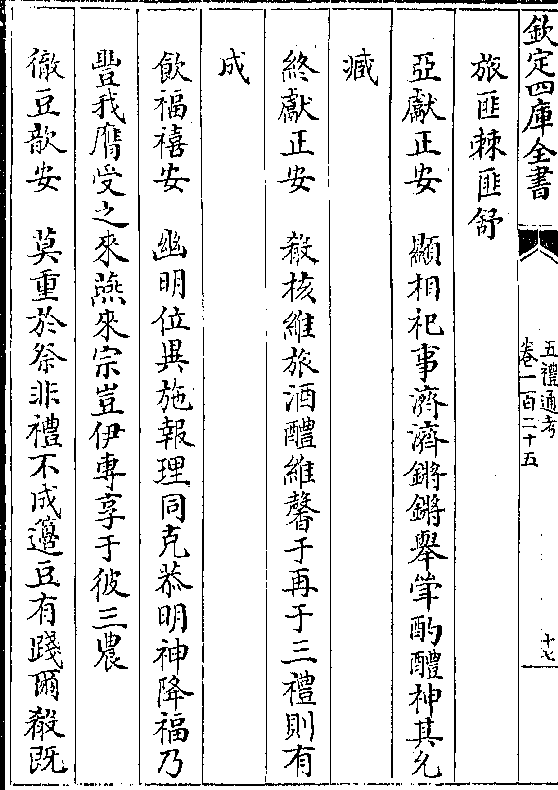 欽定四庫全書
五禮通考
卷一百二十五
十七
旅匪棘匪舒
亞獻正安　顯相祀事濟濟鏘鏘舉斝酌醴神其允
臧
終獻正安　殽核維旅酒醴維馨于再于三禮則有
成
飲福禧安　幽明位異施報理同克恭明神降福乃
豐我膺受之來燕來宗豈伊專享于彼三農
徹豆歆安　莫重於祭非禮不成籩豆有踐爾殽既